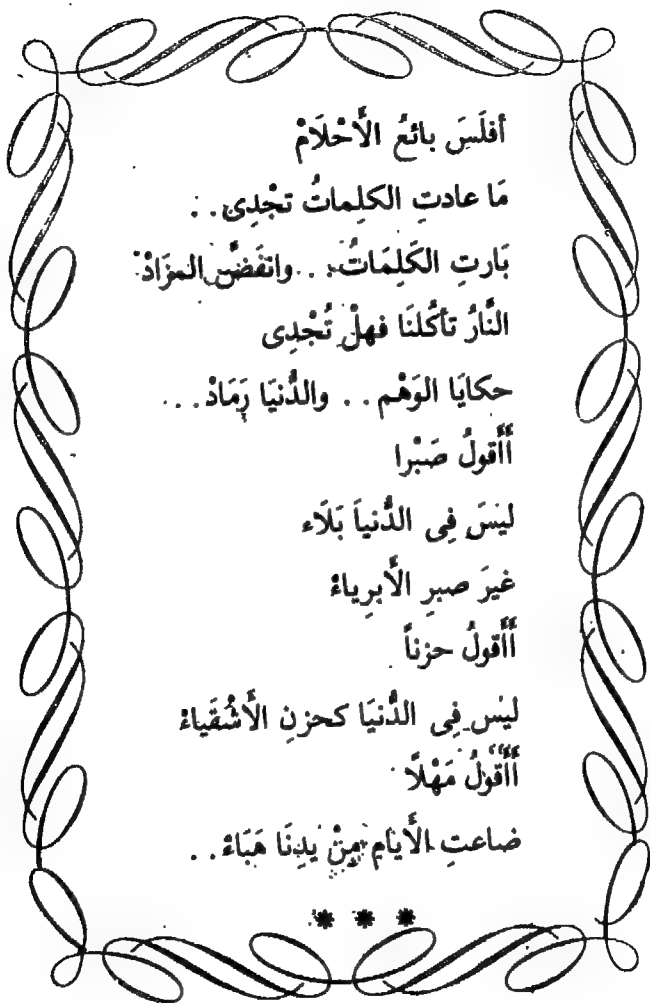 أفلَسَ بائعُ الأَحْلَامْ
مَا عادتِ الكلِماتُ تجْدِى . .
بَارتِ الكَلِمَاتُ . . وانفَضَّ المزَادْ
النَّارُ تأكُلنَا فهلْ تُجْدِى
حكايَا الوَهْم . . والدُّنيَا رَمَادْ . . .
أَأَقولُ صَبْرا
ليسَ فِى الدُّنياَ بَلَاء
غيرَ صبرِ الأَبرِياءْ
أَأَقولُ حزناً
ليْس فِى الدُّنيَا كحزنِ الأَشْقَياءْ
أَأَقوْلُ مَهْلًا
ضاعتِ الأَيام مِنْ يدِنَا هَبَاءْ . .
* * *